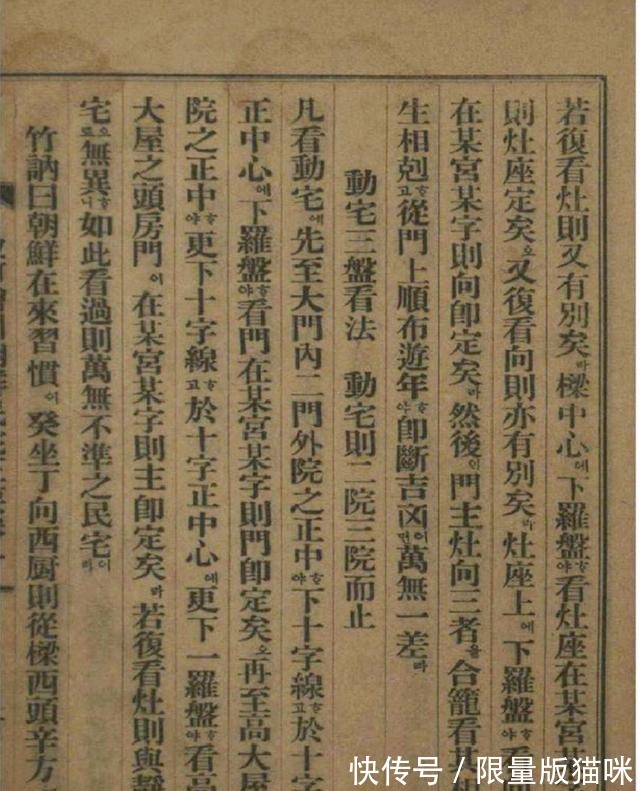 若復看灶則又有別矣라樑中心에下羅盤ᄒᆞ야看灶座在某宮某
則灶座定矣오又復看向則亦有別矣라灶座上에下羅盤ᄒᆞ야看
在某宮某字則向卽定矣라然後이門主灶向三者을合籠看其相
生相剋ᄒᆞ고從門上順布遊年ᄒᆞ야卽斷吉凶ᄒᆞ면萬無一差라
動宅三盤看法　動宅則二院三院而止
凡看動宅에先至大門內二門外院之正中ᄒᆞ야下十字線ᄒᆞ고於十字
正中心에下羅盤ᄒᆞ야看門在某宮某字則門卽定矣오再至高大屋
院之正中ᄒᆞ야更下十字線ᄒᆞ고於十字正中心에更下一羅盤ᄒᆞ야看高
大屋之頭房門이在某宮某字則主卽定矣라若復看灶則與靜
宅으로無異ᄒᆞ니如此看過則萬無不準之民宅이라
竹訥曰朝鮮在來習慣이癸坐丁向西厨則從樑西頭辛方
快传号/限量版猫咪